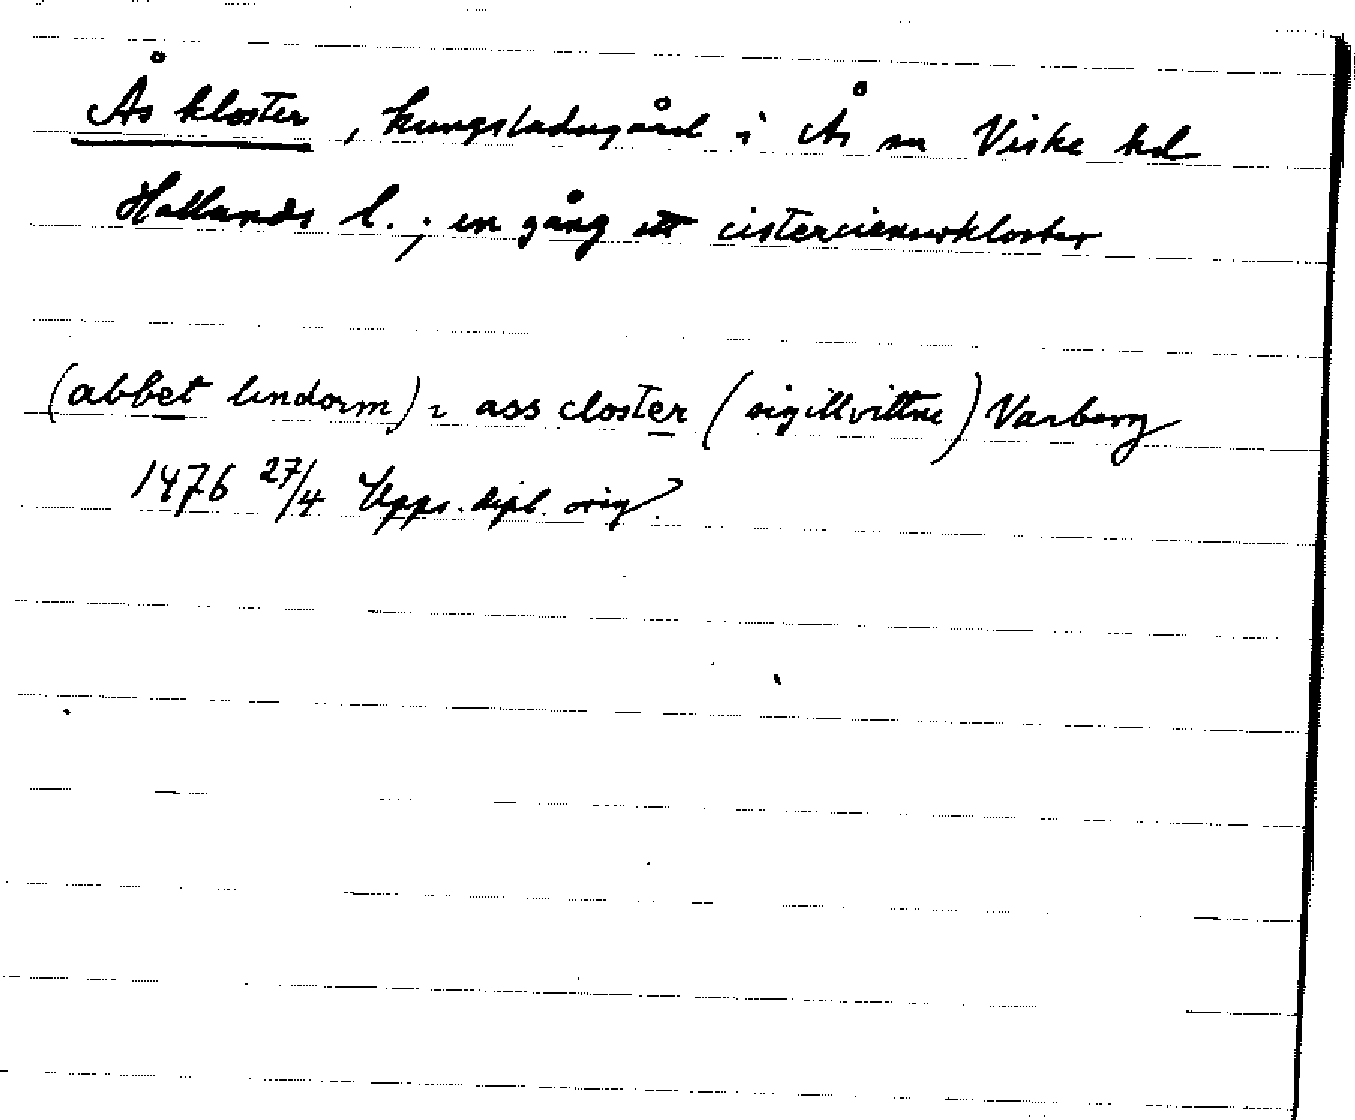 Ås kloster, kungsladugård i Ås sn Viske hd
Hallands l.; en gång ett cistercienserkloster
(abbet lindorm) i ass closter (sigillvittne) Varberg
1476 27/4 Upps. dipl. orig.